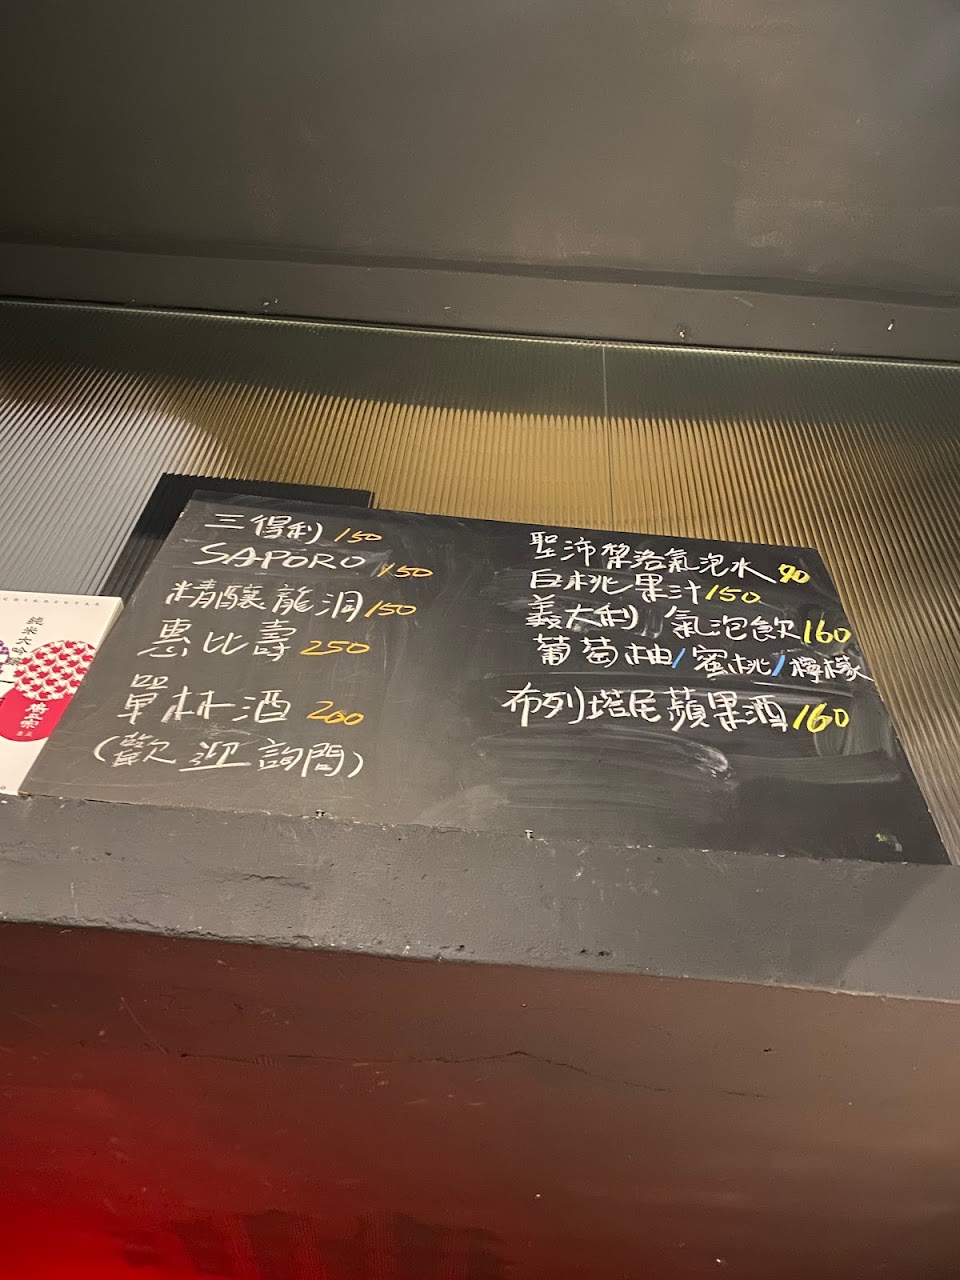 三得利 150
SAPORO 150
精釀龍洞 150
惠比壽 250
單杯酒 200
(歡迎詢問)
聖沛黎洛氣泡水 90
白桃果汁 150
義大利 氣泡飲 160
葡萄柚/蜜桃/檸檬
布列塔尼蘋果酒 160
純米大吟